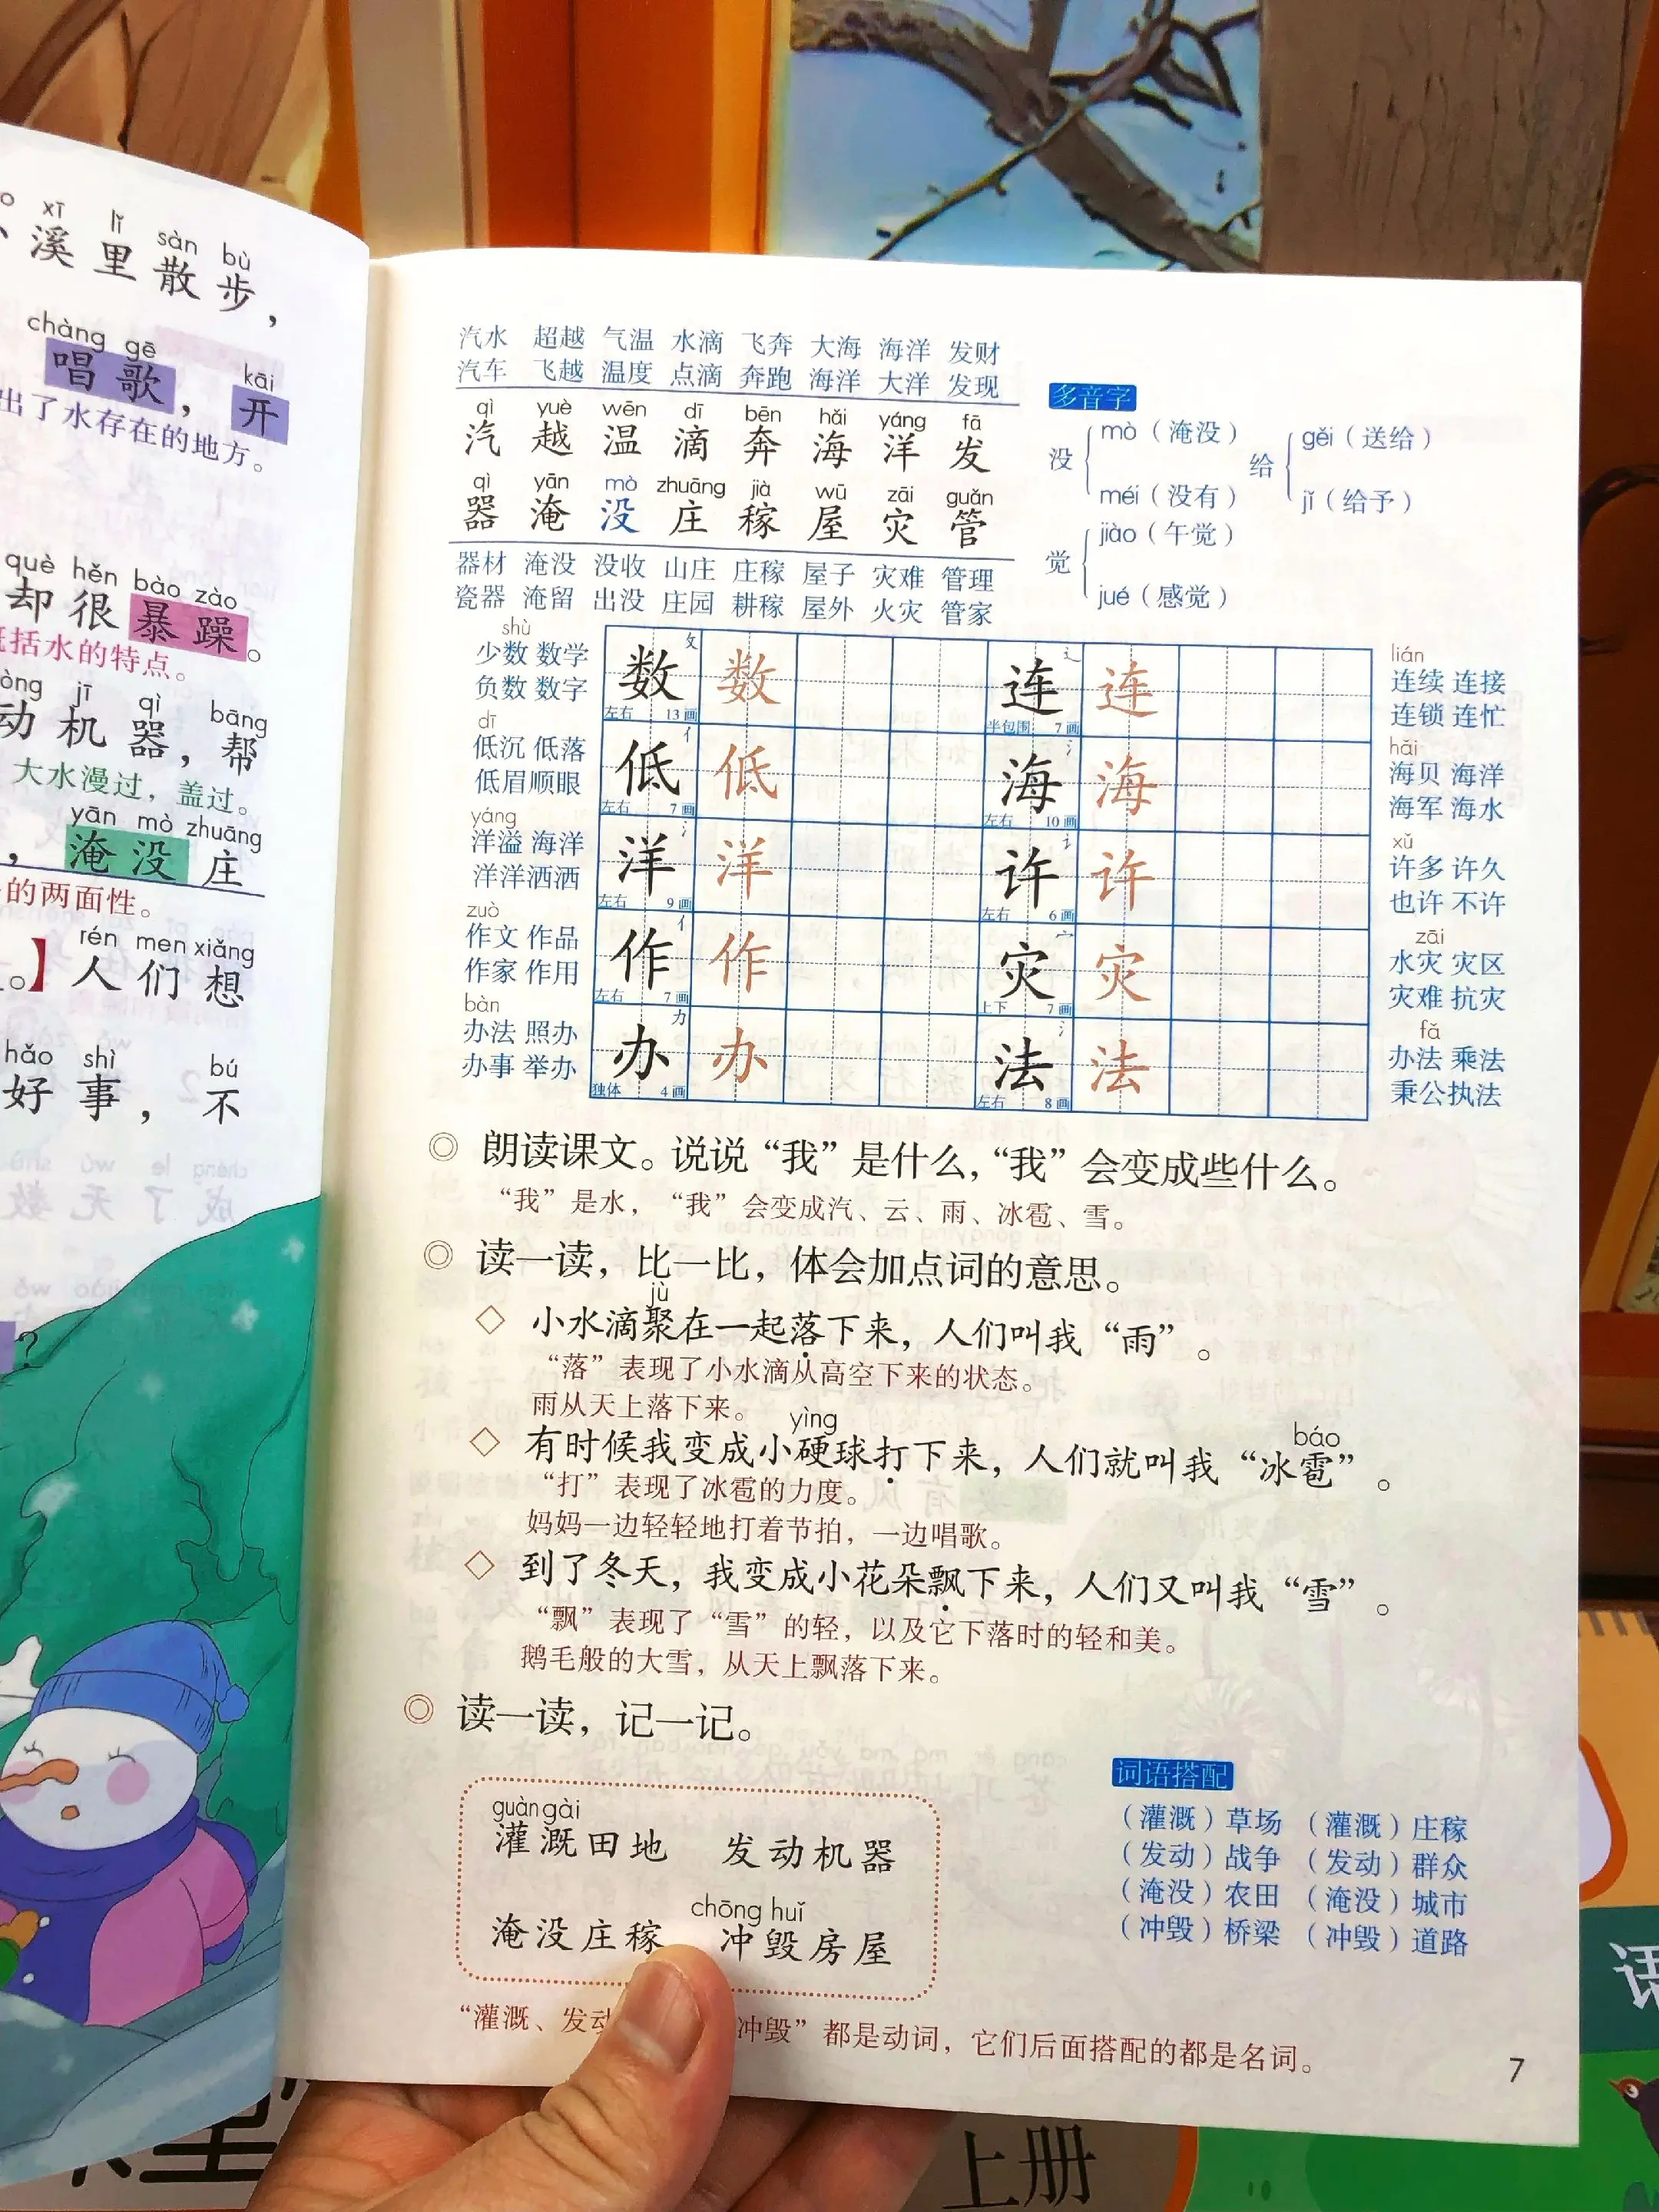 溪里散步，
xī lǐ sàn bù
chàng gē kāi
唱歌，开
出了水存在的地方。
què hěn bào zào
却很暴躁。
括水的特点。
jī qì bāng
动机器，帮
大水漫过，盖过。
yān mò zhuāng
，淹没庄
的两面性。
rén men xiǎng
。】人们想
hǎo shì bú
好事，不
？
汽水 超越 气温 水滴 飞奔 大海 海洋 发财
汽车 飞越 温度 点滴 奔跑 海洋 大洋 发现
qì yuè wēn dī bēn hǎi yáng fā
汽 越 温 滴 奔 海 洋 发
qì yān mò zhuāng jià wū zāi guǎn
器 淹 没 庄 稼 屋 灾 管
器材 淹没 没收 山庄 庄稼 屋子 灾难 管理
瓷器 淹留 出没 庄园 耕稼 屋外 火灾 管家
多音字
没 mò（淹没） méi（没有）
给 gěi（送给） jǐ（给予）
觉 jiào（午觉） jué（感觉）
shù
少数 数学
负数 数字
数 数 攵 左右 13画
连 连 辶 半包围 7画
lián
连续 连接
连锁 连忙
dī
低沉 低落
低眉顺眼
低 低 亻 左右 7画
海 海 氵 左右 10画
hǎi
海贝 海洋
海军 海水
yáng
洋溢 海洋
洋洋洒洒
洋 洋 氵 左右 9画
许 许 讠 左右 6画
xǔ
许多 许久
也许 不许
zuò
作文 作品
作家 作用
作 作 亻 左右 7画
灾 灾 宀 上下 7画
zāi
水灾 灾区
灾难 抗灾
bàn
办法 照办
办事 举办
办 办 力 独体 4画
法 法 氵 左右 8画
fǎ
办法 乘法
秉公执法
◎ 朗读课文。说说“我”是什么，“我”会变成些什么。
“我”是水，“我”会变成汽、云、雨、冰雹、雪。
◎ 读一读，比一比，体会加点词的意思。
jù
◇ 小水滴聚在一起落下来，人们叫我“雨”。
“落”表现了小水滴从高空下来的状态。
雨从天上落下来。
yìng báo
◇ 有时候我变成小硬球打下来，人们就叫我“冰雹”。
“打”表现了冰雹的力度。
妈妈一边轻轻地打着节拍，一边唱歌。
◇ 到了冬天，我变成小花朵飘下来，人们又叫我“雪”。
“飘”表现了“雪”的轻，以及它下落时的轻和美。
鹅毛般的大雪，从天上飘落下来。
◎ 读一读，记一记。
guàn gài
灌溉田地 发动机器
chōng huǐ
淹没庄稼 冲毁房屋
词语搭配
（灌溉）草场 （灌溉）庄稼
（发动）战争 （发动）群众
（淹没）农田 （淹没）城市
（冲毁）桥梁 （冲毁）道路
“灌溉、发动 冲毁”都是动词，它们后面搭配的都是名词。
7
上册